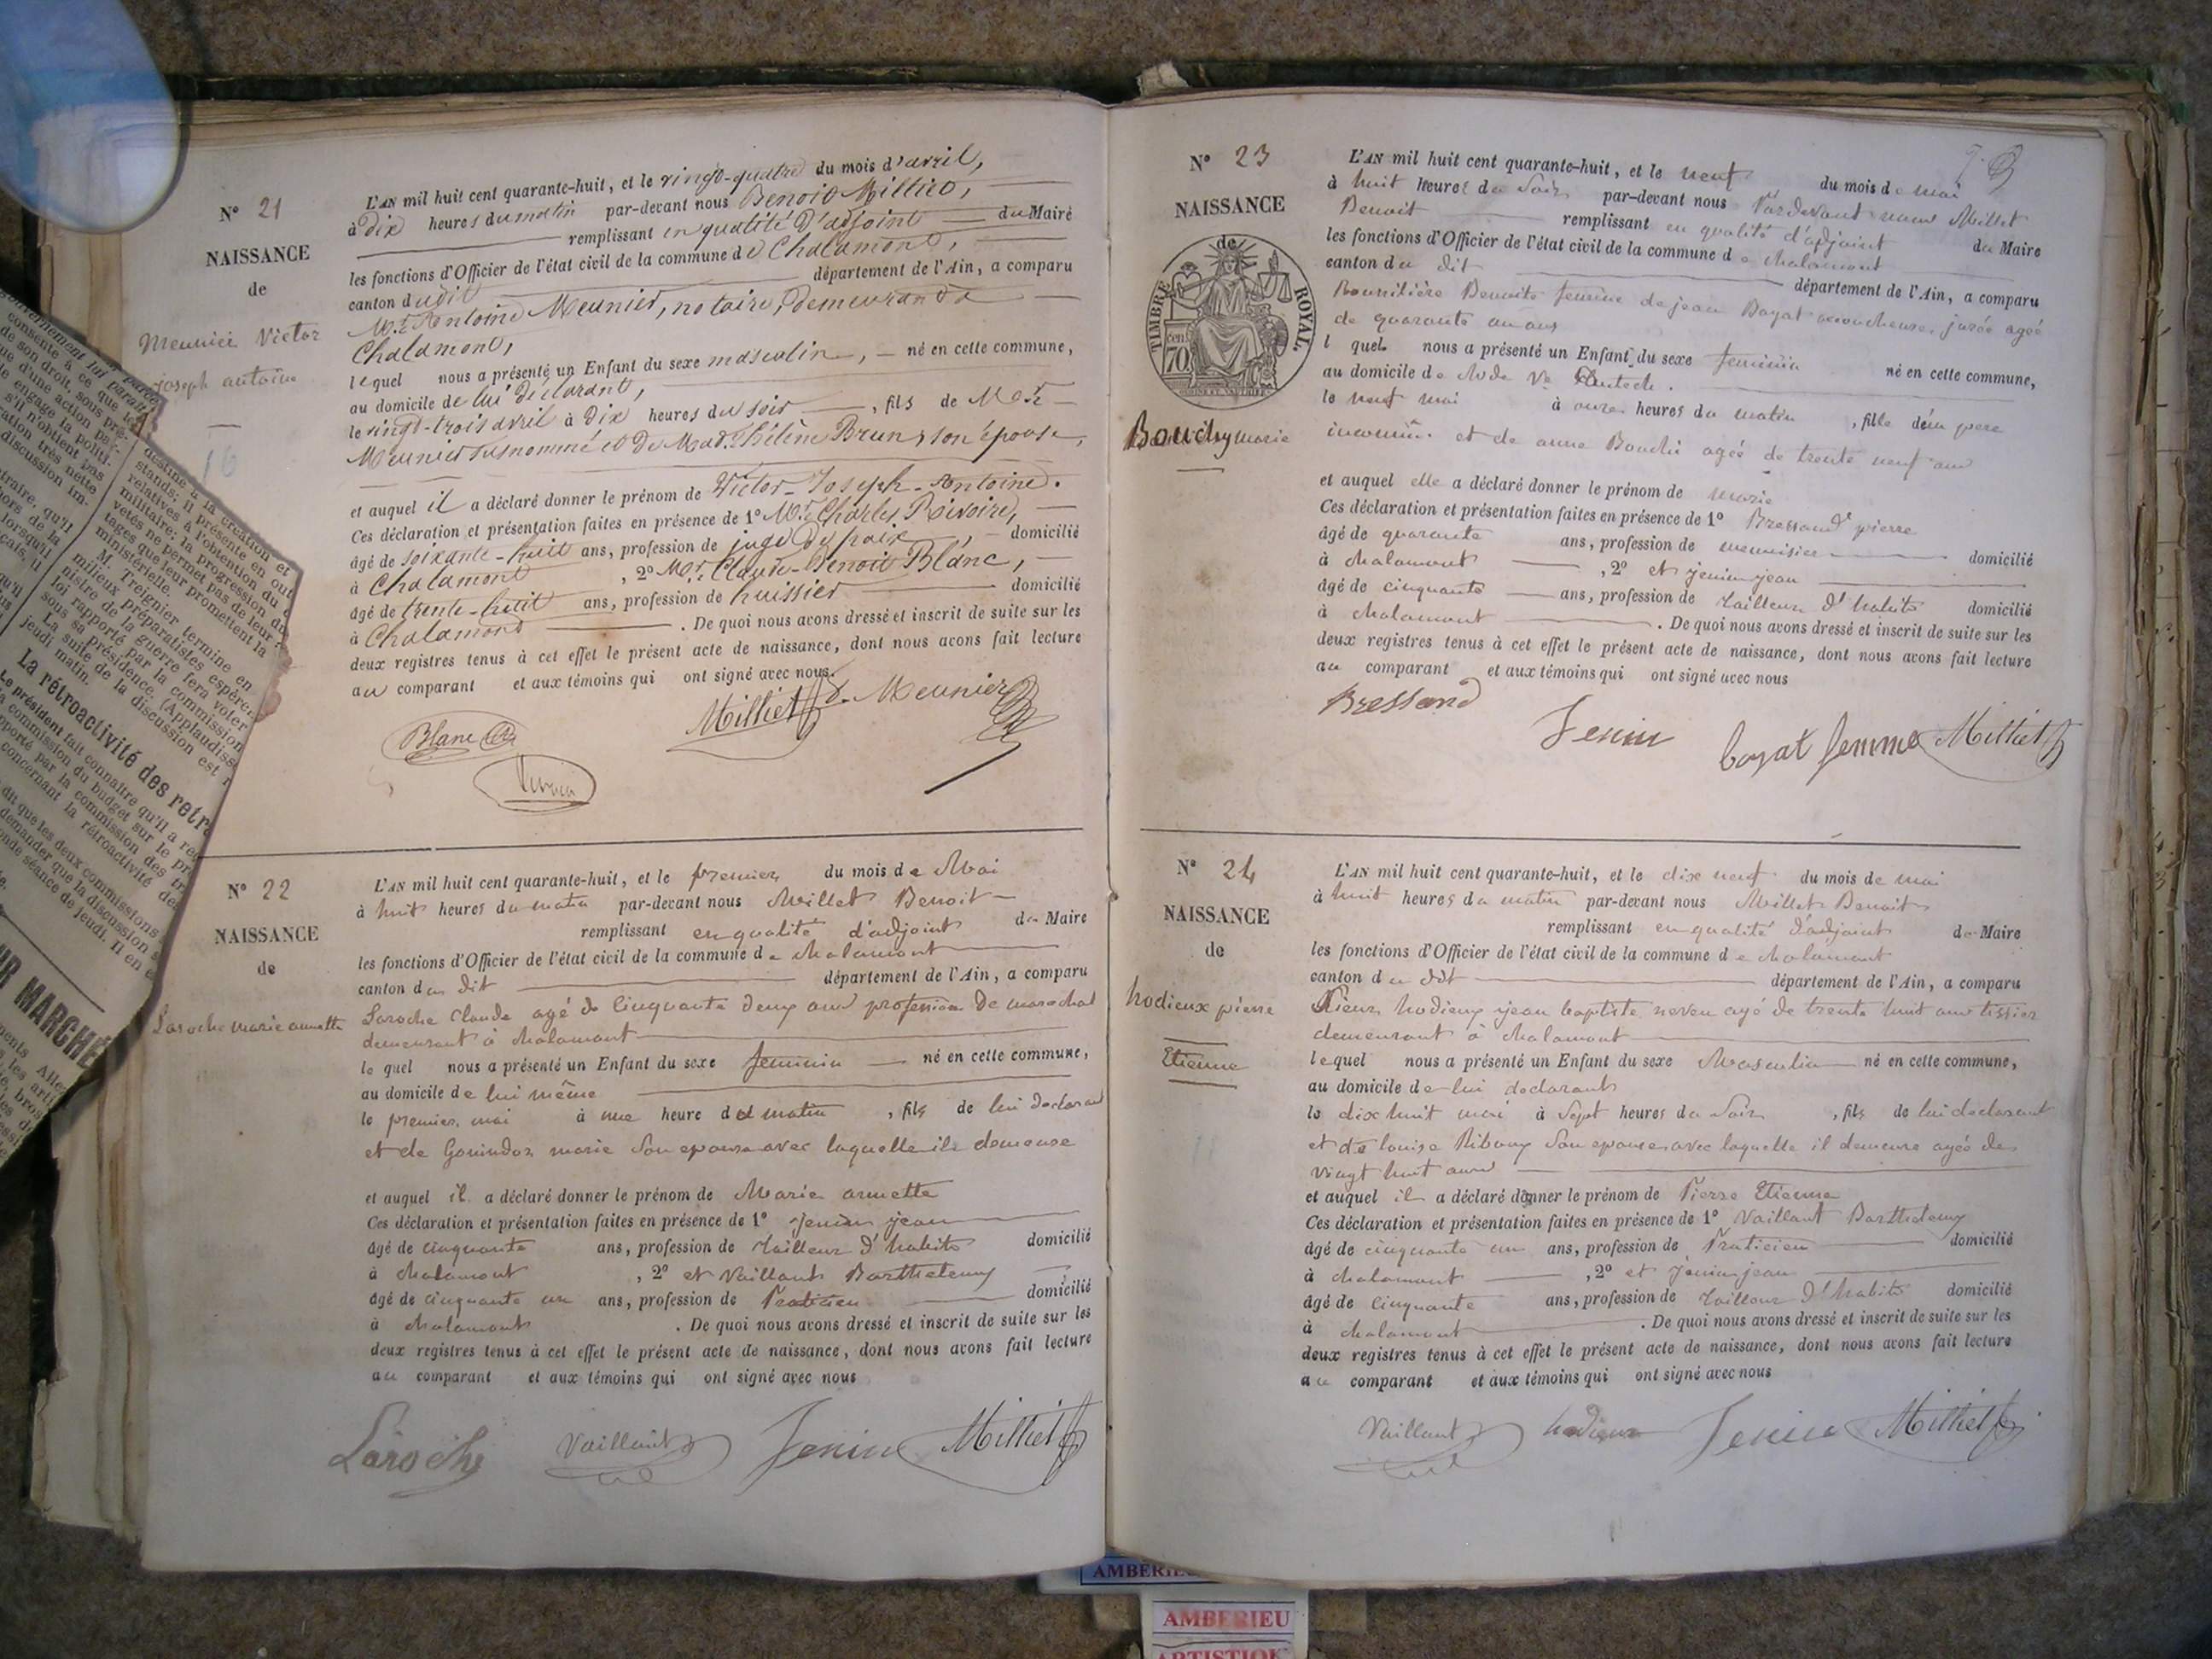 N° 21
NAISSANCE
de
Meunier Victor
joseph antoine
L'AN mil huit cent quarante-huit, et le vingt-quatre du mois d'avril,
à dix heures du matin par-devant nous Benoit Milliet,
remplissant en qualité d'adjoint du Maire
les fonctions d'Officier de l'état civil de la commune de Chalamont,
canton dudit département de l'Ain, a comparu
Mr. Antoine Meunier, notaire, demeurant à
Chalamont,
lequel nous a présenté un Enfant du sexe masculin, né en cette commune,
au domicile de lui déclarant,
le vingt-trois avril à dix heures du soir, fils de Me
Meunier susnommé et de Mad. Hélène Brun, son épouse,
et auquel il a déclaré donner le prénom de Victor-Joseph-Antoine.
Ces déclaration et présentation faites en présence de 1° Mr. Charles Rivoire,
âgé de soixante-huit ans, profession de juge de paix, domicilié
à Chalamont, 2° Mr. Claude-Benoit Blanc,
âgé de trente-huit ans, profession de huissier domicilié
à Chalamont. De quoi nous avons dressé et inscrit de suite sur les
deux registres tenus à cet effet le présent acte de naissance, dont nous avons fait lecture
au comparant et aux témoins qui ont signé avec nous.
Blanc Milliet Meunier
N° 22
NAISSANCE
de
Laroche marie annette
L'AN mil huit cent quarante-huit, et le premier du mois de Mai
à huit heures du matin par-devant nous Millet Benoit
remplissant en qualité d'adjoint du Maire
les fonctions d'Officier de l'état civil de la commune de chalamont
canton du dit département de l'Ain, a comparu
Laroche Claude agé de Cinquante deux ans profession de marechal
demeurant à chalamont
le quel nous a présenté un Enfant du sexe feminin né en cette commune,
au domicile de lui même
le premier mai à une heure du matin, fils de lui declarant
et de marie son epouse avec laquelle il demeure
et auquel il a déclaré donner le prénom de Marie annette
Ces déclaration et présentation faites en présence de 1° Jenin jean
âgé de cinquante ans, profession de tailleur d'habits domicilié
à chalamont, 2° et Vaillant Barthelemy
âgé de cinquante un ans, profession de Praticien domicilié
à chalamont. De quoi nous avons dressé et inscrit de suite sur les
deux registres tenus à cet effet le présent acte de naissance, dont nous avons fait lecture
au comparant et aux témoins qui ont signé avec nous
Laroche Vaillant Jenin Milliet
N° 23
NAISSANCE
de
TIMBRE ROYAL.
70 cen
Bouchy marie
L'AN mil huit cent quarante-huit, et le neuf du mois de mai
à huit heures du soir par-devant nous Pardevant nous Millet
Benoit remplissant en qualité d'adjoint du Maire
les fonctions d'Officier de l'état civil de la commune de chalamont
canton du dit département de l'Ain, a comparu
Benoite femme de jean Bayat accoucheuse jurée agée
de quarante un ans
l quel nous a présenté un Enfant du sexe feminin né en cette commune,
au domicile de Ve
le neuf mai à onze heures du matin, fille d'un pere
inconnu et de anne Bouchi agée de trente neuf ans
et auquel elle a déclaré donner le prénom de marie
Ces déclaration et présentation faites en présence de 1° Bressand pierre
âgé de quarante ans, profession de menuisier domicilié
à chalamont, 2° et jenin jean
âgé de cinquante ans, profession de tailleur d'habits domicilié
à chalamont. De quoi nous avons dressé et inscrit de suite sur les
deux registres tenus à cet effet le présent acte de naissance, dont nous avons fait lecture
au comparant et aux témoins qui ont signé avec nous
Bressand Jenin bayat femme Milliet
N° 24
NAISSANCE
de
hodieux pierre
Etienne
L'AN mil huit cent quarante-huit, et le dix neuf du mois de mai
à huit heures du matin par-devant nous Millet Benoit
remplissant en qualité d'adjoint du Maire
les fonctions d'Officier de l'état civil de la commune de chalamont
canton du dit département de l'Ain, a comparu
Sieur hodieux jean baptiste neveu agé de trente huit ans tissier
demeurant à chalamont
lequel nous a présenté un Enfant du sexe Masculin né en cette commune,
au domicile de lui declarant
le dix huit mai à Sept heures du Soir, fils de lui declarant
et de louise Riboux Son epouse avec laquelle il demeure agée de
vingt huit ans
et auquel il a déclaré donner le prénom de Pierre Etienne
Ces déclaration et présentation faites en présence de 1° Vaillant Barthelemy
âgé de cinquante un ans, profession de Praticien domicilié
à chalamont, 2° et jenin jean
âgé de Cinquante ans, profession de Tailleur d'habits domicilié
à chalamont. De quoi nous avons dressé et inscrit de suite sur les
deux registres tenus à cet effet le présent acte de naissance, dont nous avons fait lecture
au comparant et aux témoins qui ont signé avec nous
Vaillant hodieux Jenin Milliet
La rétroactivité des retr
UR MARCHÉ
AMBERIEU